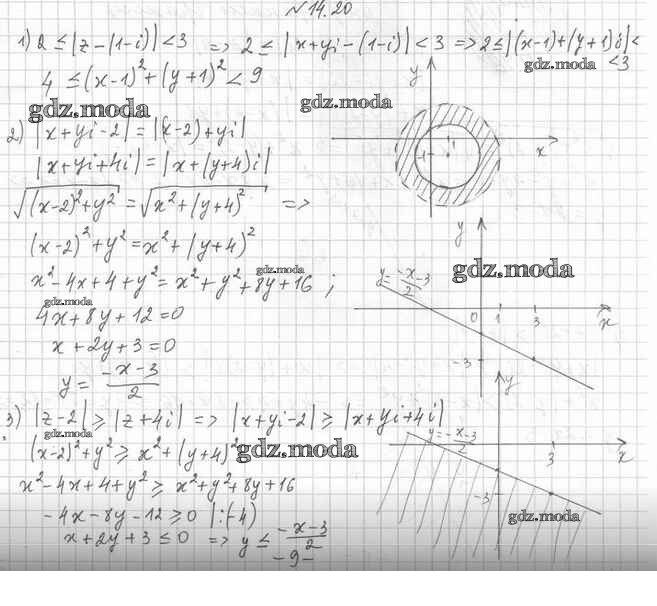 № 14.20
1) 2 ≤ |z - (1-i)| < 3 => 2 ≤ |x+yi-(1-i)| < 3 => 2 ≤ |(x-1)+(y+1)i| <
< 3
gdz.moda
4 ≤ (x-1)² + (y+1)² < 9
gdz.moda
gdz.moda
y
x
-1
1
2) |x+yi-2| = |(x-2)+yi|
|x+yi+4i| = |x+(y+4)i|
√(x-2)²+y² = √x²+(y+4)² =>
(x-2)² + y² = x² + (y+4)²
x² - 4x + 4 + y² = x² + y² + 8y + 16 ;
gdz.moda
gdz.moda
gdz.moda
4x + 8y + 12 = 0
x + 2y + 3 = 0
y = (-x-3)/2
y
y = (-x-3)/2
0 1 3
x
-3
3) |z-2| ≥ |z+4i| => |x+yi-2| ≥ |x+yi+4i|
gdz.moda
(x-2)² + y² ≥ x² + (y+4)²
gdz.moda
x² - 4x + 4 + y² ≥ x² + y² + 8y + 16
-4x - 8y - 12 ≥ 0 |:(-4)
x + 2y + 3 ≤ 0 => y ≤ (-x-3)/2
- 9 -
y
y = (-x-3)/2
3
x
-3
gdz.moda